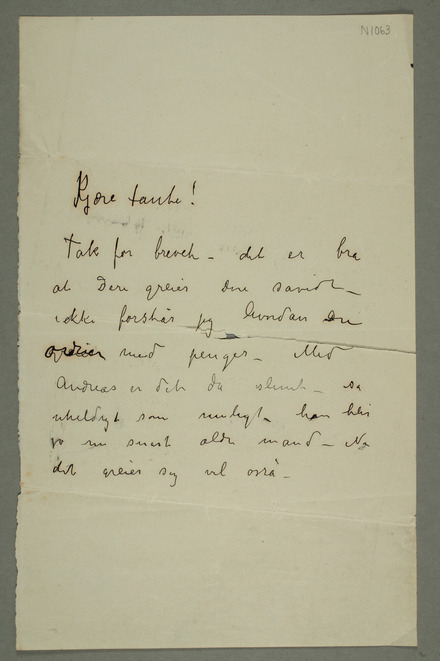 N1063
Kjære tante!
Tak for brevet – det er bra
at Dere greier Dere
ikke forstår jeg hvordan Du
greier med penger – Med
Andreas er det da slemt – så
uheldigt som muligt – han blir
jo nu snart ældre mand – Nå
det greier sig vel også –